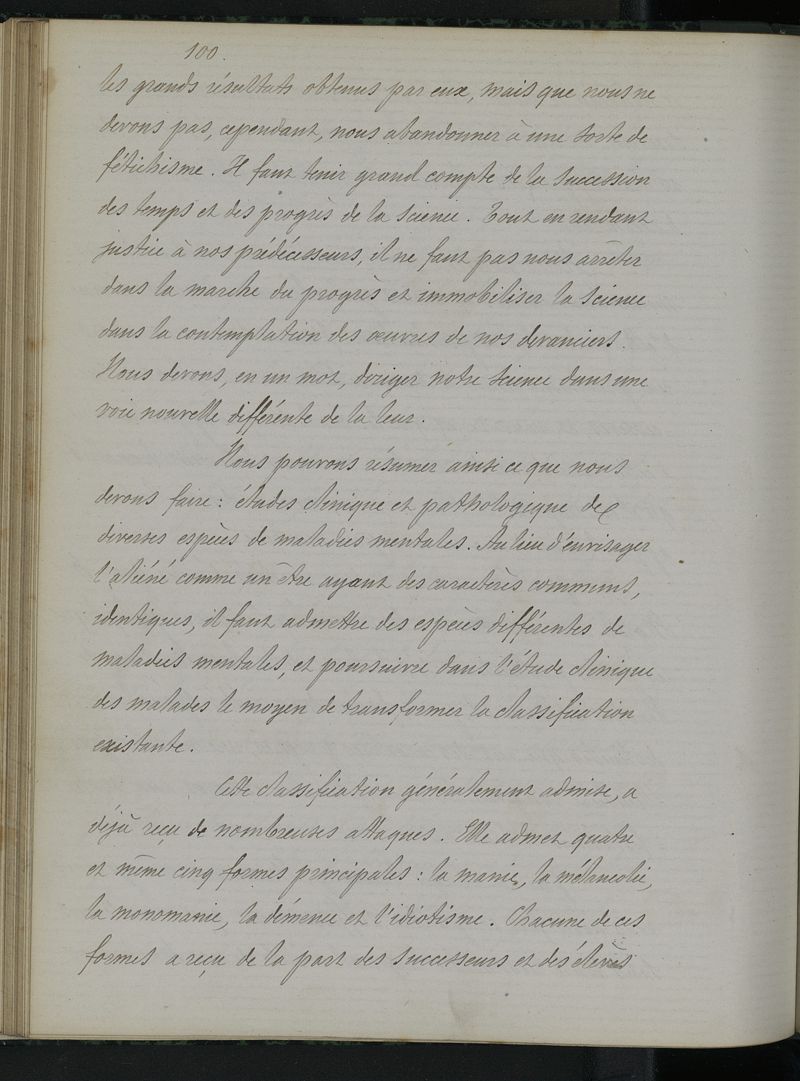 100.
les grands résultats obtenus par eux, mais que nous ne
devons pas, cependant, nous abandonner à une sorte de
fétichisme. Il faut tenir grand compte de la succession
des temps et des progrès de la science. Tout en rendant
justice à nos prédécesseurs, il ne faut pas nous arrêter
dans la marche du progrès et immobiliser la science
dans la contemplation des œuvres de nos devanciers.
Nous devons, en un mot, diriger notre science dans une
voie nouvelle différente de la leur.
Nous pouvons résumer ainsi ce que nous
devons faire : études clinique et pathologique des
diverses espèces de maladies mentales. Au lieu d'envisager
l'aliéné comme un être ayant des caractères communs,
identiques, il faut admettre des espèces différentes de
maladies mentales, et poursuivre dans l'étude clinique
des malades le moyen de transformer la classification
existante.
Cette classification généralement admise, a
déjà reçu de nombreuses attaques. Elle admet quatre
et même cinq formes principales : la manie, la mélancolie,
la monomanie, la démence et l'idiotisme. Chacune de ces
formes a reçu de la part des successeurs et des élèves